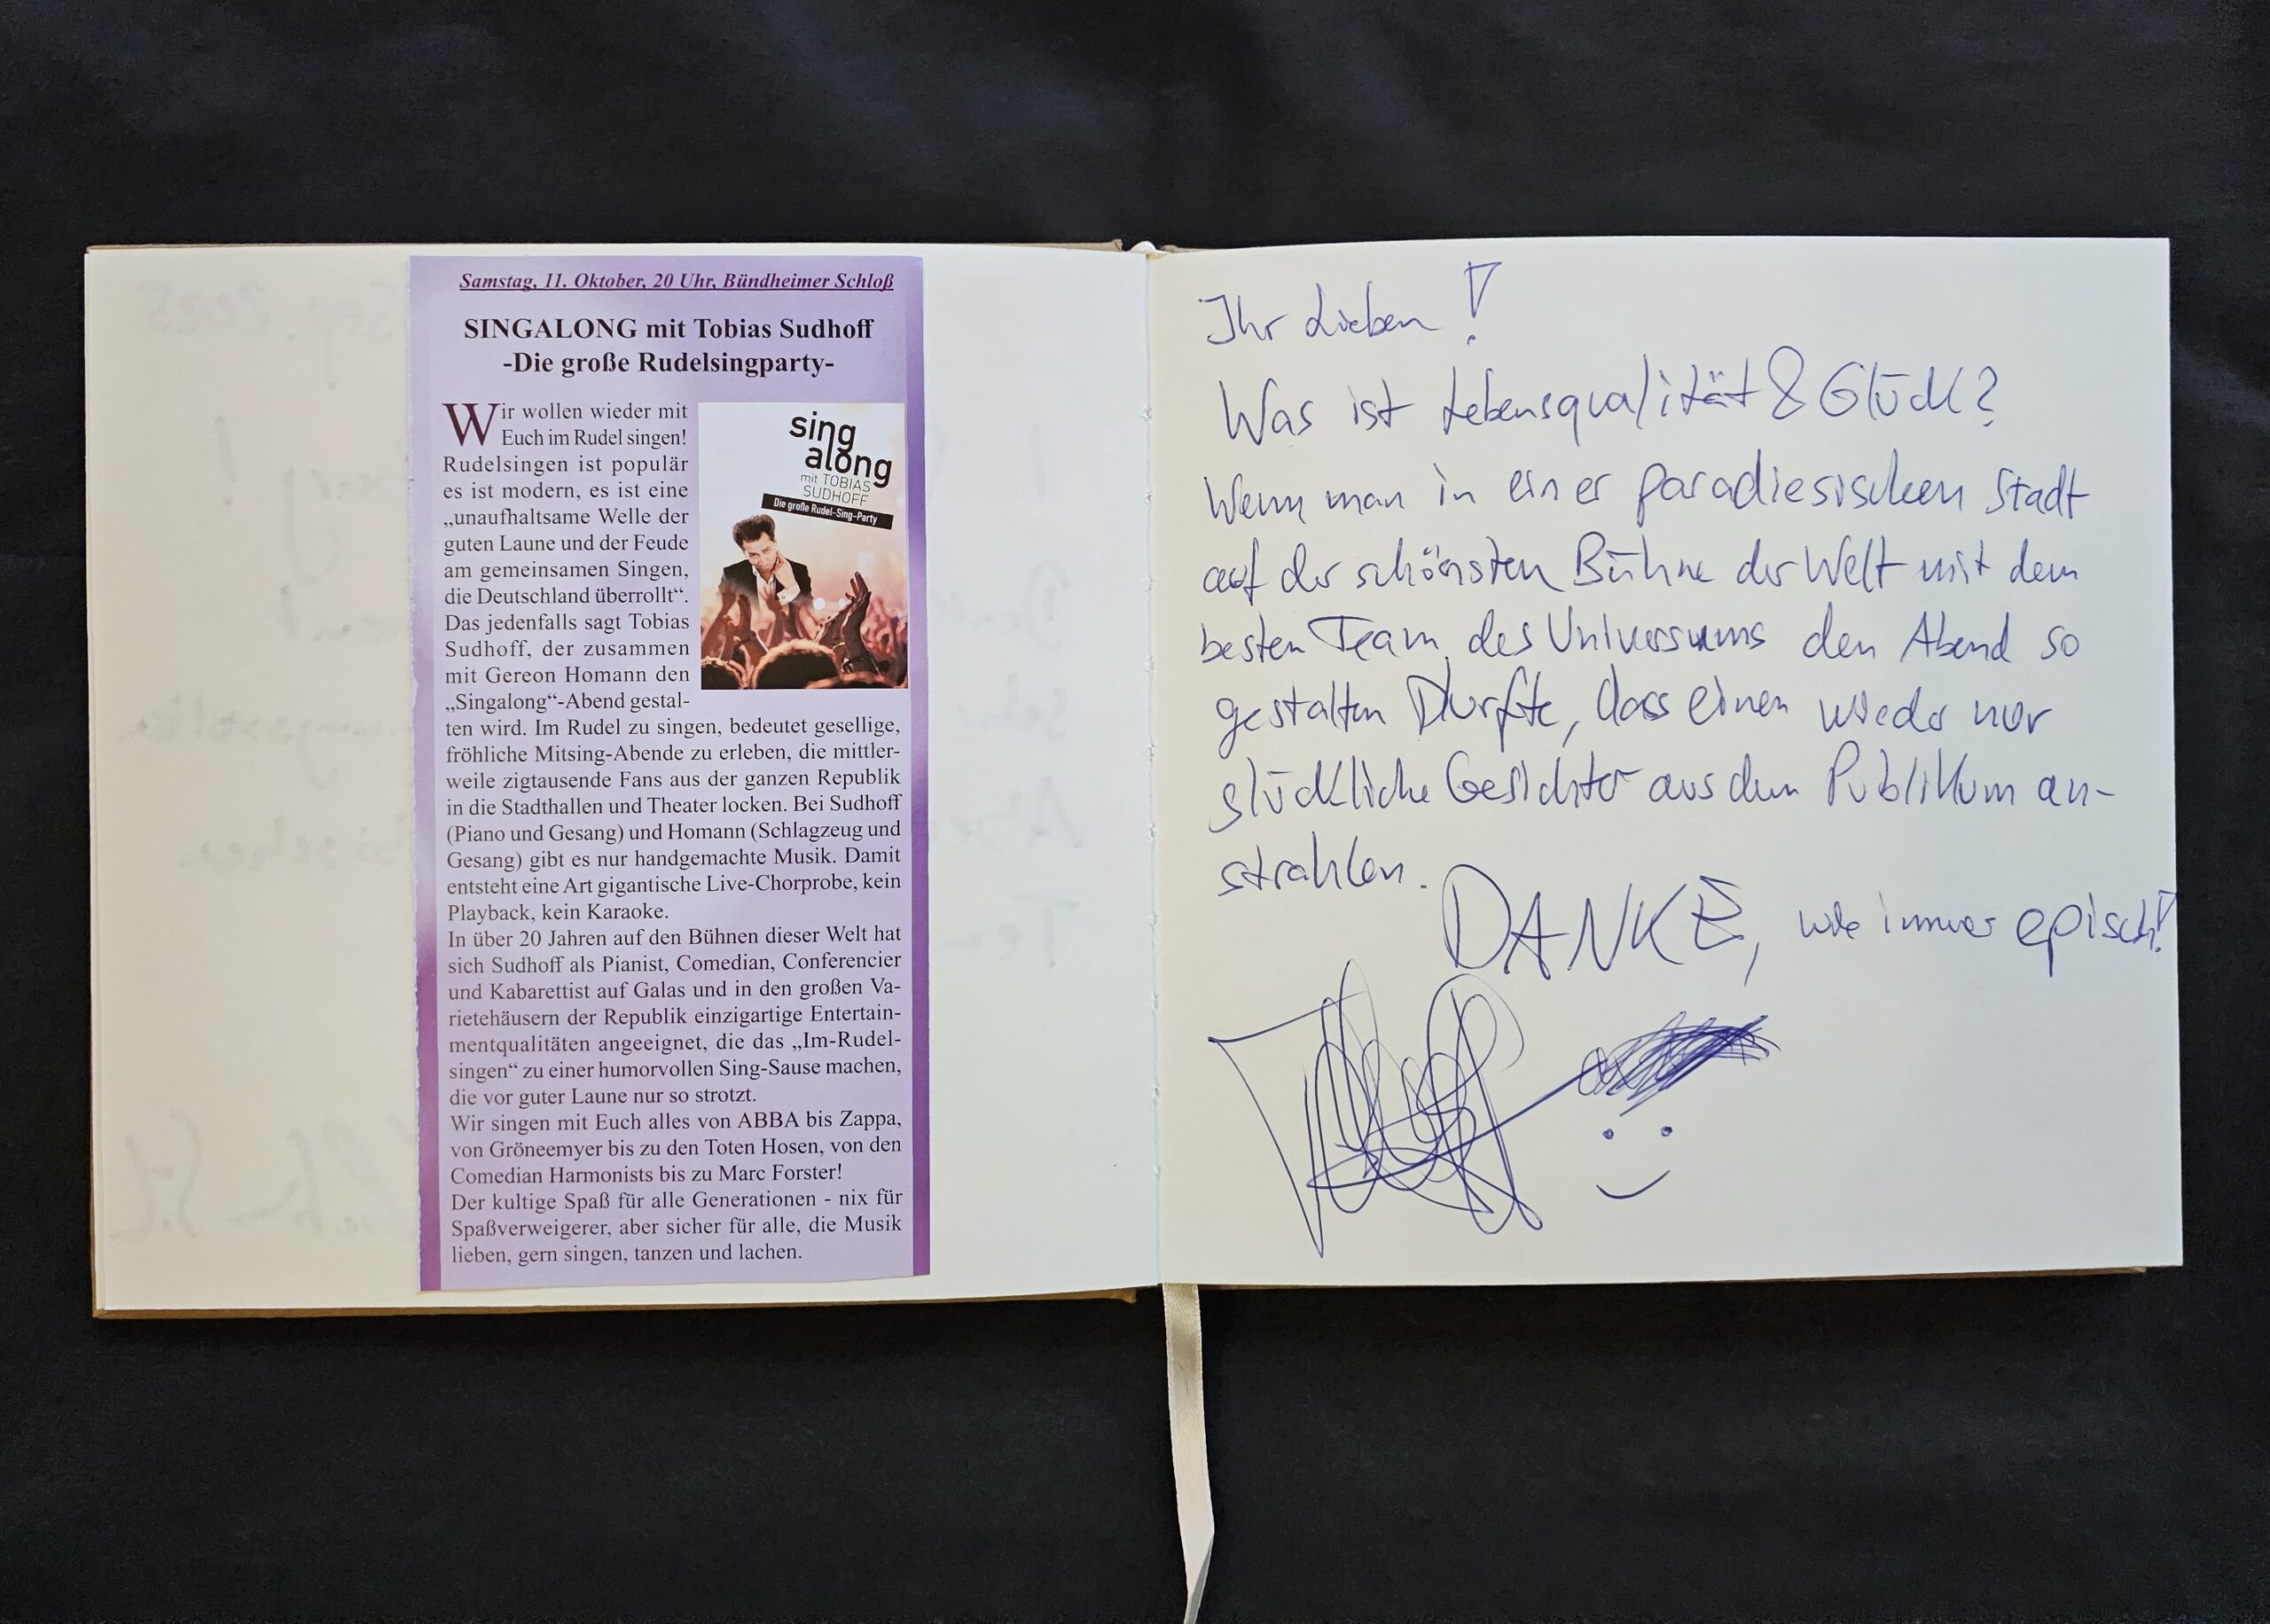 Samstag, 11. Oktober, 20 Uhr, Bündheimer Schloß
SINGALONG mit Tobias Sudhoff
-Die große Rudelsingparty-
Wir wollen wieder mit
Euch im Rudel singen!
Rudelsingen ist populär
es ist modern, es ist eine
„unaufhaltsame Welle der
guten Laune und der Feude
am gemeinsamen Singen,
die Deutschland überrollt“.
Das jedenfalls sagt Tobias
Sudhoff, der zusammen
mit Gereon Homann den
„Singalong“-Abend gestal-
ten wird. Im Rudel zu singen, bedeutet gesellige,
fröhliche Mitsing-Abende zu erleben, die mittler-
weile zigtausende Fans aus der ganzen Republik
in die Stadthallen und Theater locken. Bei Sudhoff
(Piano und Gesang) und Homann (Schlagzeug und
Gesang) gibt es nur handgemachte Musik. Damit
entsteht eine Art gigantische Live-Chorprobe, kein
Playback, kein Karaoke.
In über 20 Jahren auf den Bühnen dieser Welt hat
sich Sudhoff als Pianist, Comedian, Conferencier
und Kabarettist auf Galas und in den großen Va-
rietehäusern der Republik einzigartige Entertain-
mentqualitäten angeeignet, die das „Im-Rudel-
singen“ zu einer humorvollen Sing-Sause machen,
die vor guter Laune nur so strotzt.
Wir singen mit Euch alles von ABBA bis Zappa,
von Gröneemyer bis zu den Toten Hosen, von den
Comedian Harmonists bis zu Marc Forster!
Der kultige Spaß für alle Generationen - nix für
Spaßverweigerer, aber sicher für alle, die Musik
lieben, gern singen, tanzen und lachen.
sing
along
mit TOBIAS
SUDHOFF
Die große Rudel-Sing-Party
Ihr Lieben!
Was ist Lebensqualität & Glück?
Wenn man in einer paradiesischen Stadt
auf der schönsten Bühne der Welt mit dem
besten Team des Universums den Abend so
gestalten Durfte, dass einen wieder nur
glückliche Gesichter aus dem Publikum an-
strahlen.
DANKE, wie immer episch!